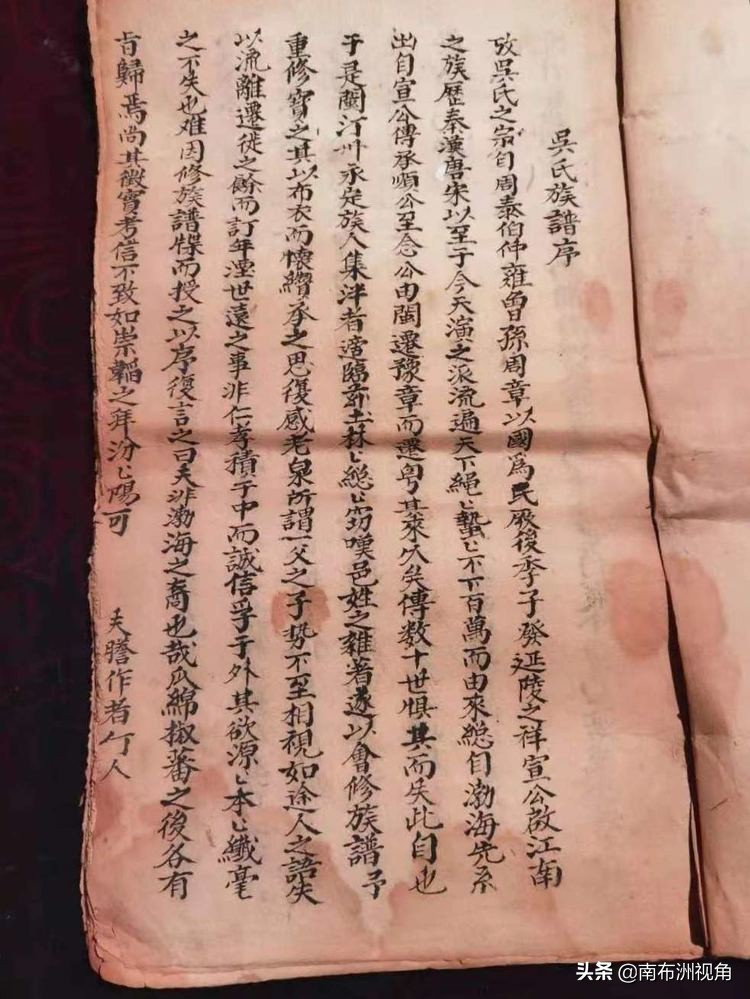 吳氏族譜序
攷吳氏之宗自周泰伯仲雍曾孫周章以國爲氏厥後季子發延陵之祥宣公啟江南
之族歷秦漢唐宋以至于今天演之派流遍天下繩〻蟄〻不下百萬而由來總自渤海先系
出自宣公傳承順公至念公由閩遷豫章而還粤其來久矣傳数十世惧其而失此自也
于是閩汀州永定族人集泮者適臨士林〻總〻窃嘆邑姓之雜著遂以會修族譜予
重修寶之其以布衣而懷纘承之思復感老泉所謂一父之子势不至相視如途人之語矣
以流離遷徙之餘而訂年湮世遠之事非仁孝積于中而誠信孚于外其欲源〻本〻纖毫
之不失也难因修族譜牒而授之以序復言之曰夫非渤海之裔也哉瓜綿椒蕃之後各有
旨歸焉尚其徵實考信不致如崇韜之拜汾〻陽可
夫謄作者仃人
头条 @南布洲视角